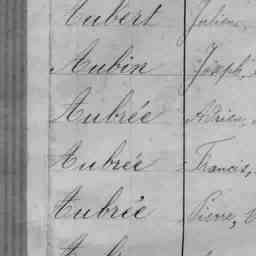 Aubert Julien,
Aubin Joseph,
Aubrée Adrien,
Aubrée Francis,
Aubrée Pierre, V